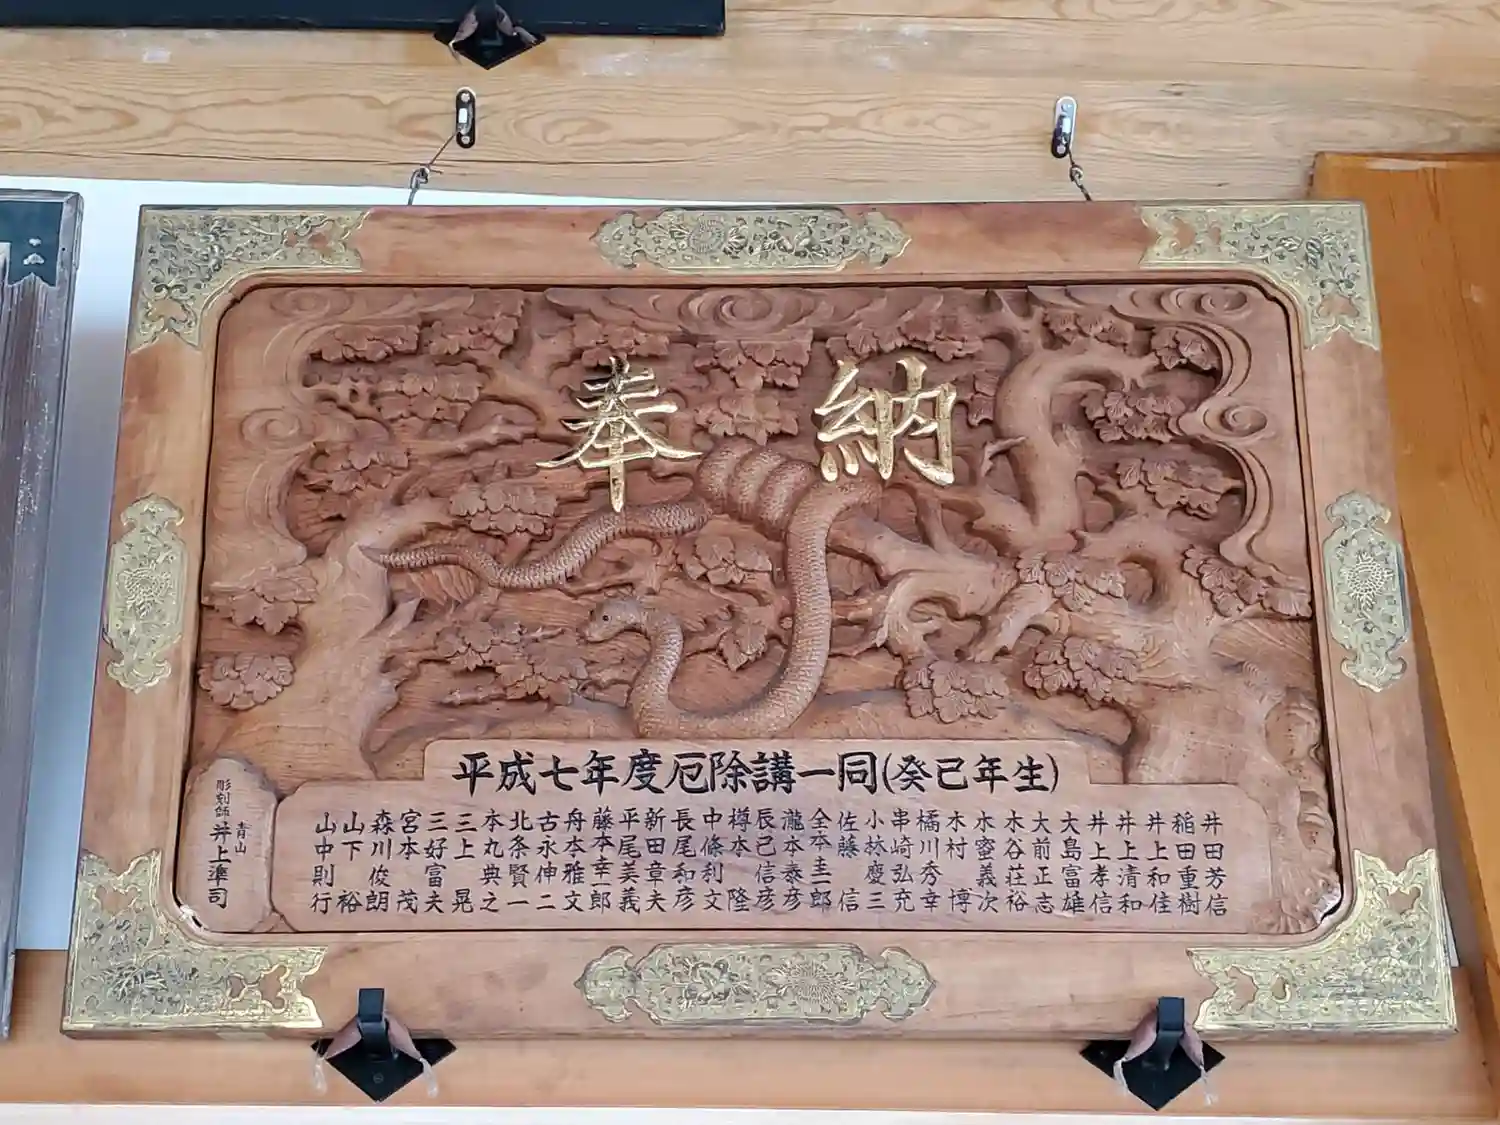 奉納
平成七年度厄除講一同(癸巳年生)
井田芳信
稲田重樹
井上和佳
井上清和
井上孝信
大島富雄
大前正志
木谷荘裕
木蜜義次
木村博
橘川秀幸
串崎弘充
小林慶三
佐藤信
全本圭一郎
瀧本泰彦
辰己信彦
樽本隆
中條利文
長尾和彦
新田章夫
平尾美義
藤本幸一郎
舟本雅文
古永伸二
北条賢一
本丸典之
三上晃
三好富夫
宮本茂
森川俊朗
山下裕
山中則行
彫刻師
青山
井上準司